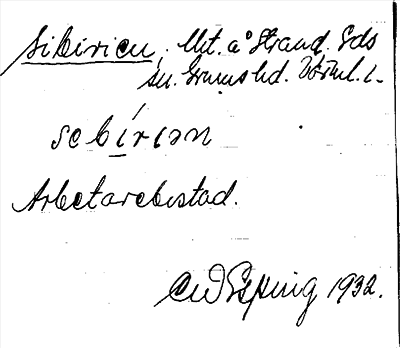 Sibirien, Utt. å Strand. Gds
sn. Grums hd. Värml. l.
sebírɩən
Arbetarebostad.
CWEsping 1932.